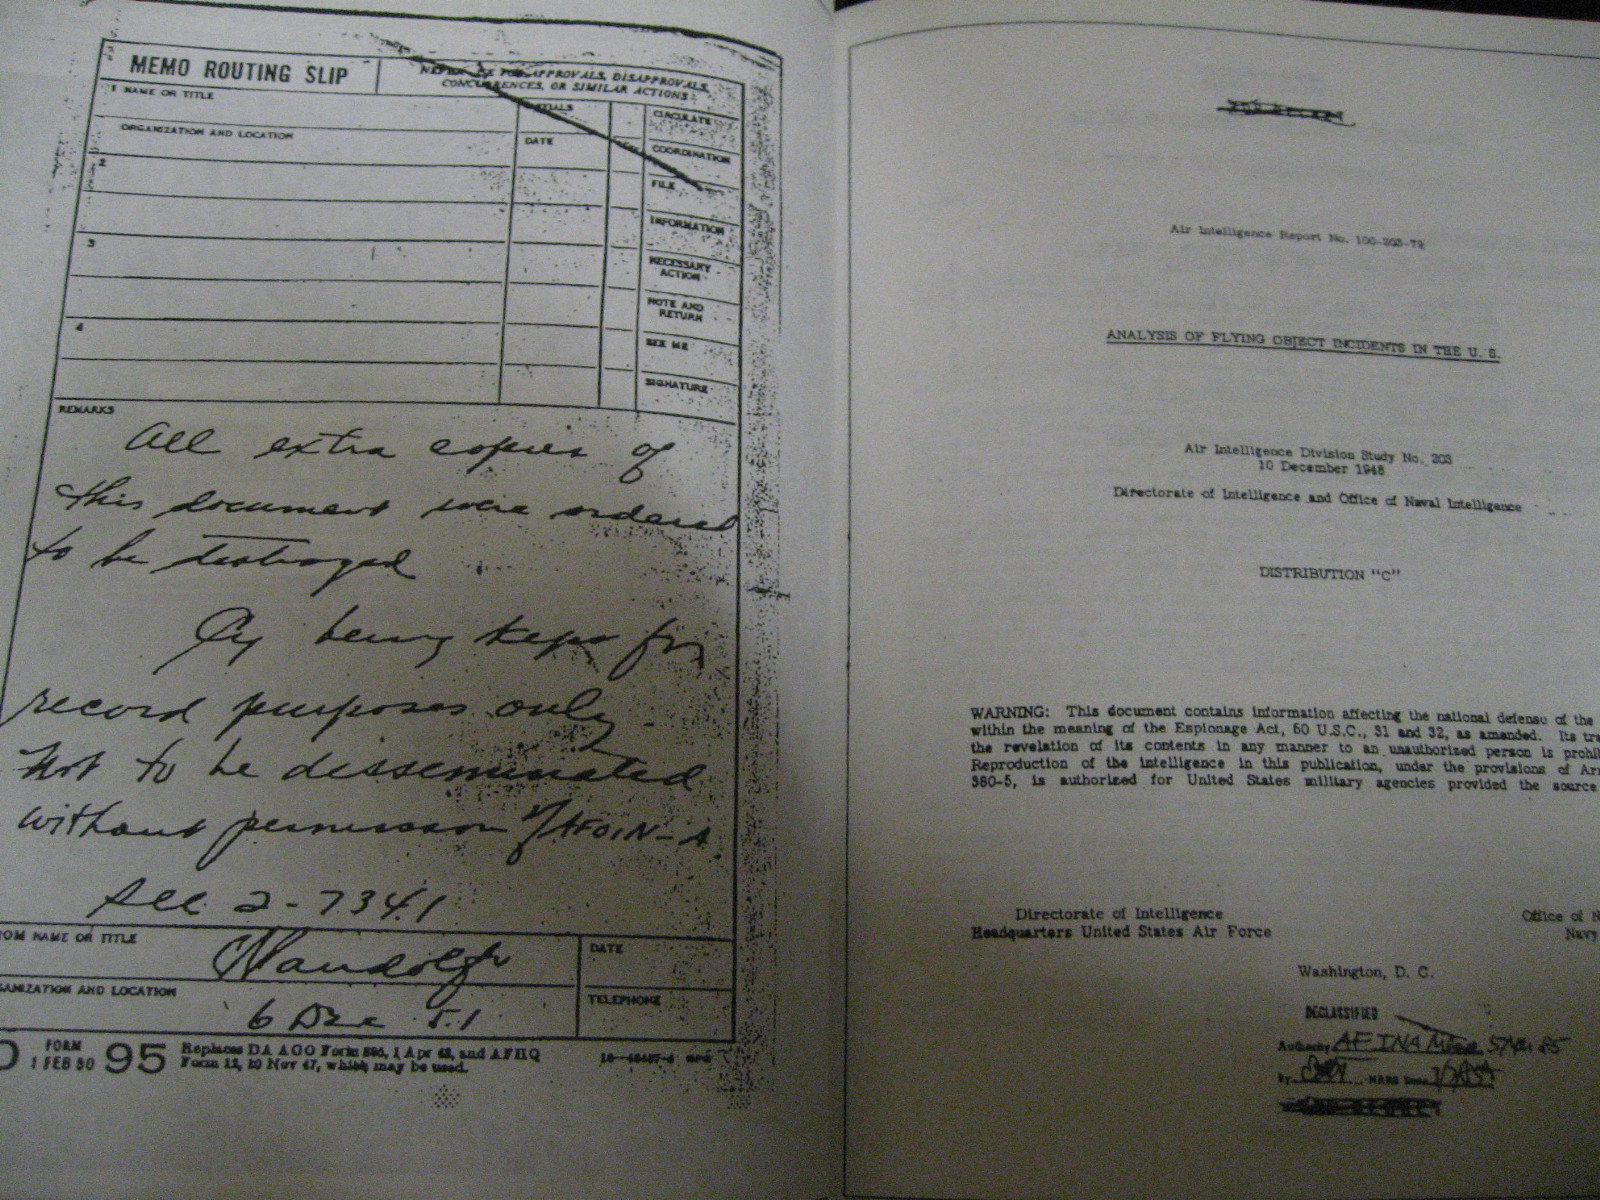 MEMO ROUTING SLIP
NEVER USE FOR APPROVALS, DISAPPROVALS,
CONCURRENCES, OR SIMILAR ACTIONS
1 NAME OR TITLE
INITIALS
CIRCULATE
ORGANIZATION AND LOCATION
DATE
COORDINATION
2
FILE
INFORMATION
3
NECESSARY
ACTION
NOTE AND
RETURN
4
SEE ME
SIGNATURE
REMARKS
All extra copies of
this document were ordered
to be destroyed
Cy being kept for
record purposes only.
Not to be disseminated
without permission of AFOIN-A
2-7341
FROM NAME OR TITLE
DATE
ORGANIZATION AND LOCATION
6 Dec 51
TELEPHONE
FORM
1 FEB 50
95
Replaces DA AGO Form 895, 1 Apr 48, and AFHQ
Form 12, 10 Nov 47, which may be used.
TOP SECRET
Air Intelligence Report No. 100-203-79
ANALYSIS OF FLYING OBJECT INCIDENTS IN THE U. S.
Air Intelligence Division Study No. 203
10 December 1948
Directorate of Intelligence and Office of Naval Intelligence
DISTRIBUTION "C"
WARNING: This document contains information affecting the national defense of the
within the meaning of the Espionage Act, 50 U.S.C., 31 and 32, as amended. Its tr
the revelation of its contents in any manner to an unauthorized person is prohi
Reproduction of the intelligence in this publication, under the provisions of Ar
380-5, is authorized for United States military agencies provided the source
Directorate of Intelligence
Headquarters United States Air Force
Office of N
Navy
Washington, D. C.
DECLASSIFIED
Authority
By NARS Date
TOP SECRET